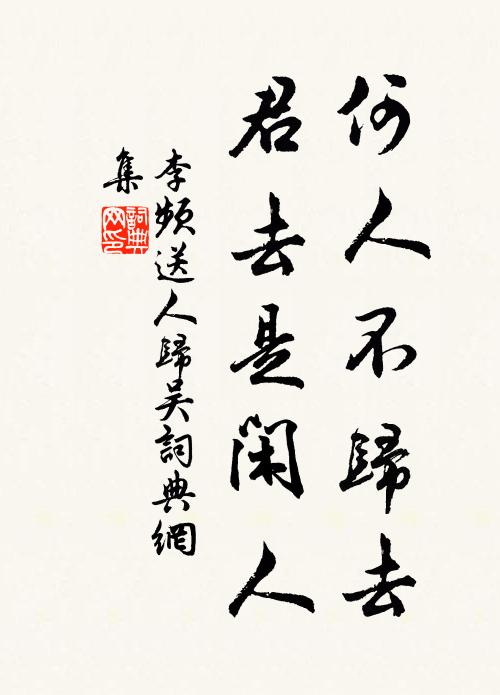 何人不歸去
君去是閑人
李頻送人歸吳詞典網
集
詞典
网印